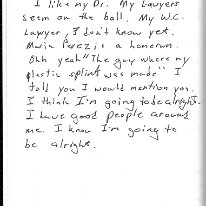 I like my Dr. My Lawyers
seem on the ball. My W.C.
Lawyer, I don't know yet.
Maria Perez is a honorum.
Ohh yeah "The guy where my
plastic splint was made" I
told you I would mention you.
I think I'm going to be alright.
I have good people around
me. I know I'm going to
be alright.